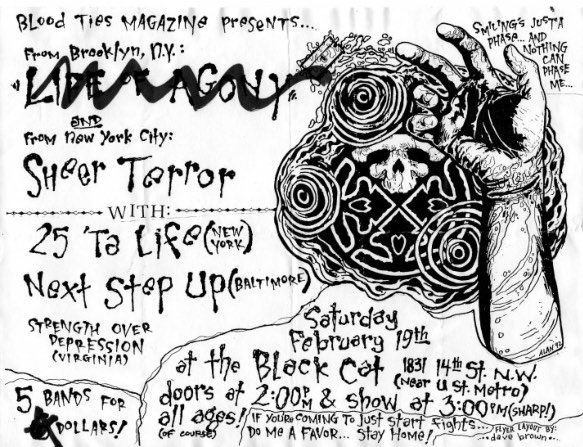 BLOOD TIES MAGAZINE PRESENTS...
FROM BROOKLYN, N.Y.:
LIFE OF AGONY
AND
FROM NEW YORK CITY:
SHEER TERROR
WITH:
25 'TA LIFE (NEW YORK)
NEXT STEP UP (BALTIMORE)
STRENGTH OVER
DEPRESSION
(VIRGINIA)
5 BANDS FOR
DOLLARS!
SMILING'S JUST A
PHASE... AND
NOTHING
CAN
PHASE
ME...
ALAN '92
SATURDAY
FEBRUARY 19TH
AT THE BLACK CAT 1831 14TH ST. N.W.
(NEAR U ST. METRO)
DOORS AT 2:00PM & SHOW AT 3:00PM (SHARP!)
ALL AGES!
(OF COURSE)
IF YOU'RE COMING TO JUST START FIGHTS...
DO ME A FAVOR... STAY HOME!
FLYER LAYOUT BY:
DAVE BROWN.